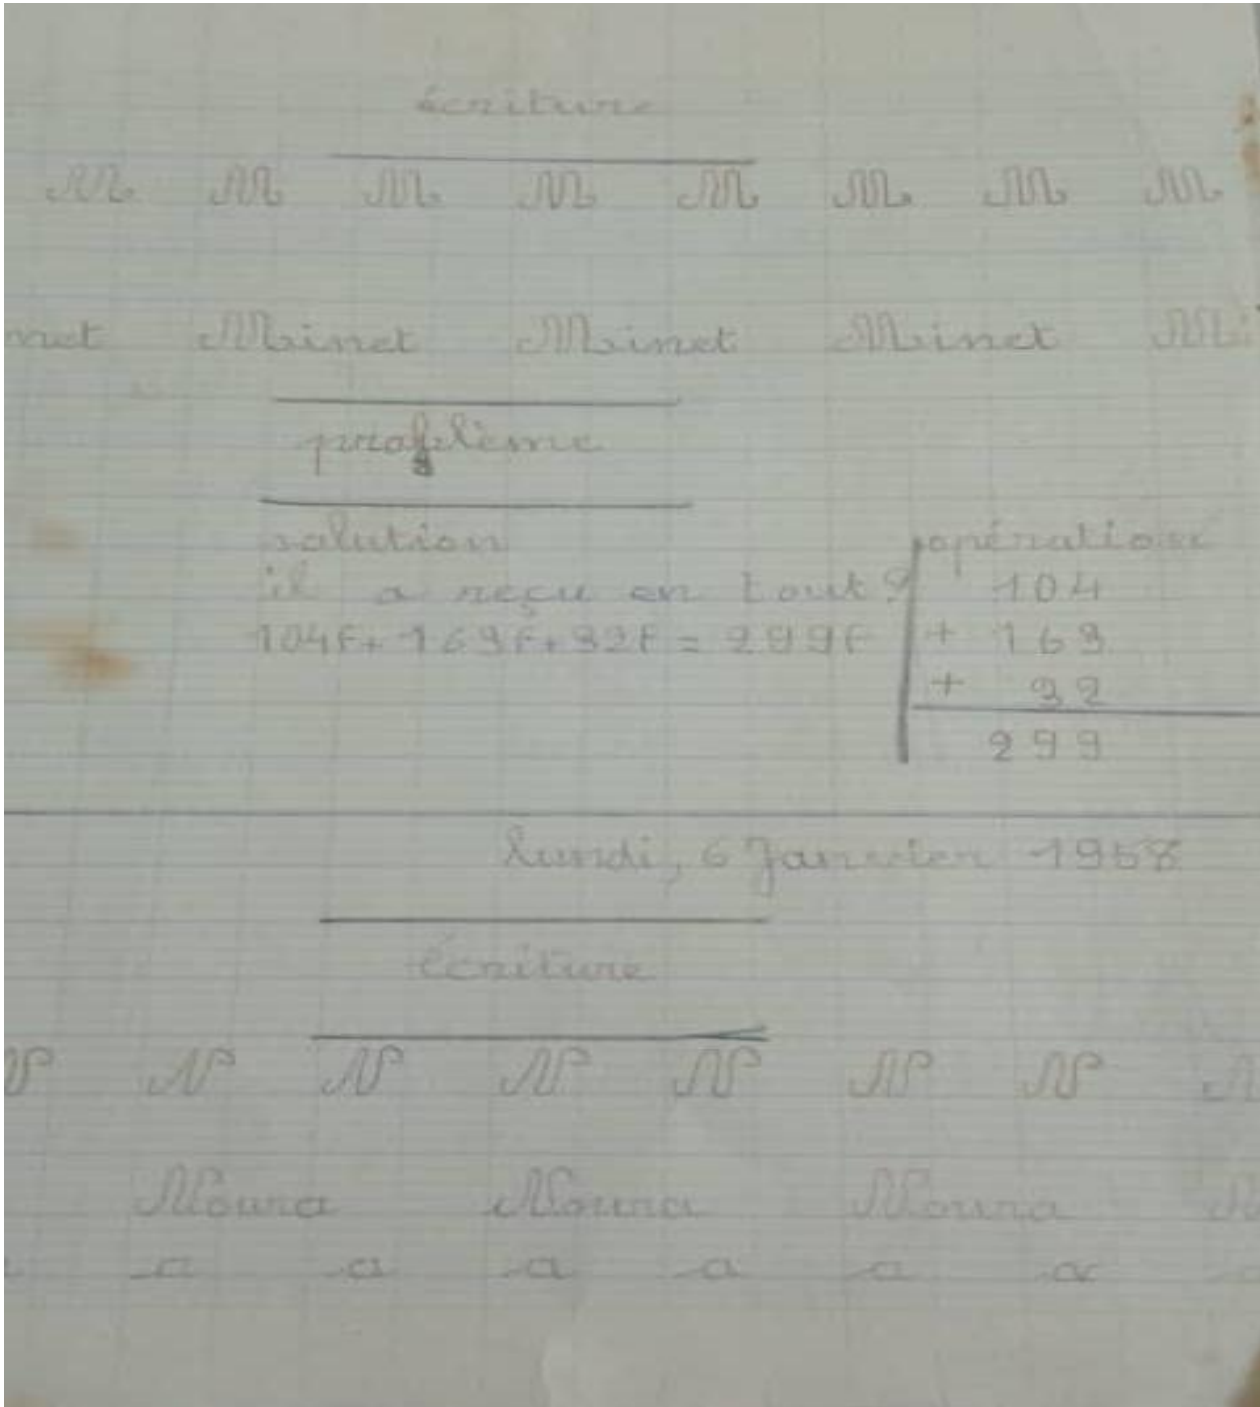 écriture
M M M M M M M M
net Minet Minet Minet Mi
problème
solution
opérations
il a reçu en tout ?
104F + 163F + 32F = 299F
104
+ 163
+ 32
299
lundi, 6 Janvier 1958
écriture
N N N N N N N N
Noura Noura Noura
a a a a a a